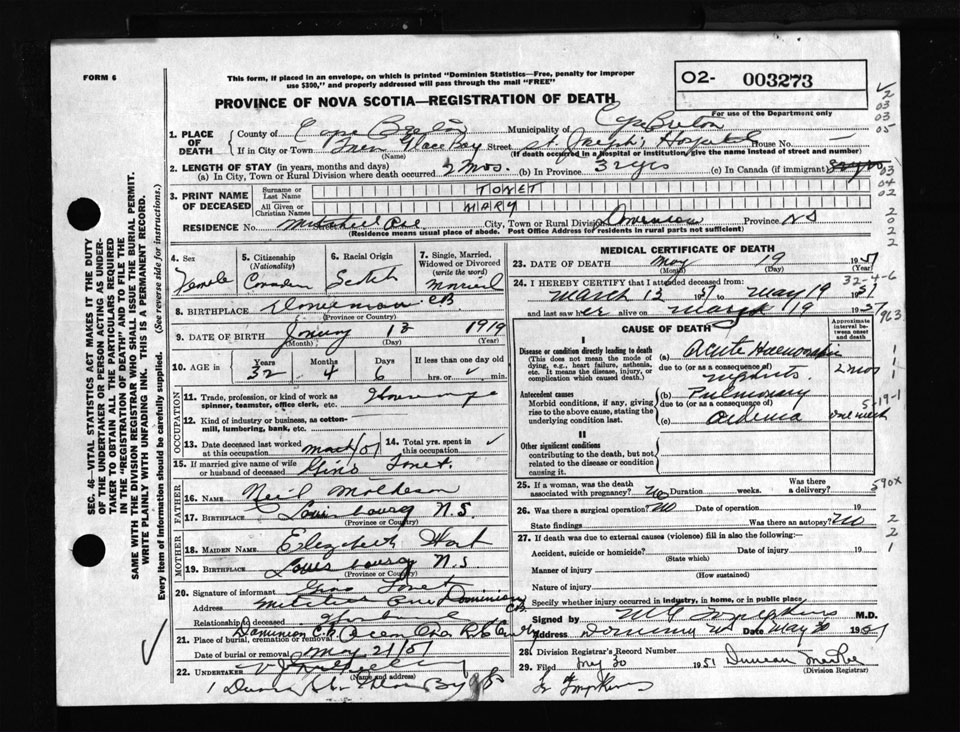 FORM 6
This form, if placed in an envelope, on which is printed "Dominion Statistics—Free, penalty for improper
use $300," and properly addressed will pass through the mail "FREE"
PROVINCE OF NOVA SCOTIA—REGISTRATION OF DEATH
O2- 003273
For use of the Department only
2
03
03
05
1. PLACE OF DEATH
County of Cape Breton Municipality of Cape Breton
If in City or Town Glace Bay Street St. Joseph's Hospital House No. —
(Name) (If death occurred in a hospital or institution, give the name instead of street and number)
2. LENGTH OF STAY (in years, months and days)
(a) In City, Town or Rural Division where death occurred 2 mos. (b) In Province 32 yrs (c) In Canada (if immigrant)
03
04
02
3. PRINT NAME OF DECEASED
Surname or Last Name TONET
All Given or Christian Names MARY
2
0
2
2
RESIDENCE No. Mitchell Ave City, Town or Rural Division Dominion Province N S
(Residence means usual place of abode. Post Office Address for residents in rural parts not sufficient)
4. Sex Female
5. Citizenship (Nationality) Canadian
6. Racial Origin Scotch
7. Single, Married, Widowed or Divorced (write the word) Married
8. BIRTHPLACE CB
(Province or Country)
9. DATE OF BIRTH January 13 1919
(Month) (Day) (Year)
10. AGE in Years 32 Months 4 Days 6 If less than one day old hrs. or min.
OCCUPATION
11. Trade, profession, or kind of work as spinner, teamster, office clerk, etc.
12. Kind of industry or business, as cotton-mill, lumbering, bank, etc.
13. Date deceased last worked at this occupation
14. Total yrs. spent in this occupation
15. If married give name of wife or husband of deceased Gino Tonet.
FATHER
16. NAME Neil Matheson
17. BIRTHPLACE Louisbourg N.S.
(Province or Country)
MOTHER
18. MAIDEN NAME Elizabeth
19. BIRTHPLACE Louisbourg N.S
(Province or Country)
20. Signature of informant Gino Tonet
Address Mitchell Ave Dominion CB
Relationship to deceased Husband
21. Place of burial, cremation or removal Dominion C.B.
Date of burial or removal May 21/51
22. UNDERTAKER
(Name and address)
MEDICAL CERTIFICATE OF DEATH
23. DATE OF DEATH May 19 1951
(Month) (Day) (Year)
32-4-6
24. I HEREBY CERTIFY that I attended deceased from:
March 13 1951 to May 19 1951
and last saw her alive on 19 1951
963
CAUSE OF DEATH
Approximate interval between onset and death
I
Disease or condition directly leading to death
(This does not mean the mode of dying, e.g., heart failure, asthenia, etc. It means the disease, injury, or complication which caused death.)
(a) Acute Haemorrhagic
due to (or as a consequence of)
nephritis. 2 mos
1
1
1
Antecedent causes
Morbid conditions, if any, giving rise to the above cause, stating the underlying condition last.
(b) Pulmonary
due to (or as a consequence of)
(c) oedema one week
5-19-1
II
Other significant conditions
contributing to the death, but not related to the disease or condition causing it.
25. If a woman, was the death associated with pregnancy? No Duration weeks. Was there a delivery?
590X
26. Was there a surgical operation? No Date of operation 19
State findings Was there an autopsy? No
2
2
1
27. If death was due to external causes (violence) fill in also the following:
Accident, suicide or homicide? Date of injury 19
(State which)
Manner of injury
(How sustained)
Nature of injury
Specify whether injury occurred in industry, in home, or in public place
Signed by Tompkins M.D.
Address Dominion Date May 20 1951
28. Division Registrar's Record Number
29. Filed May 30 1951 Duncan
(Division Registrar)
Dr Tompkins
SEC. 46—VITAL STATISTICS ACT MAKES IT THE DUTY
OF THE UNDERTAKER OR PERSON ACTING AS UNDER-
TAKER TO OBTAIN ALL THE PARTICULARS REQUIRED
IN THE "REGISTRATION OF DEATH" AND TO FILE THE
SAME WITH THE DIVISION REGISTRAR WHO SHALL ISSUE THE BURIAL PERMIT.
WRITE PLAINLY WITH UNFADING INK. THIS IS A PERMANENT RECORD.
Every item of Information should be carefully supplied. (See reverse side for instructions.)